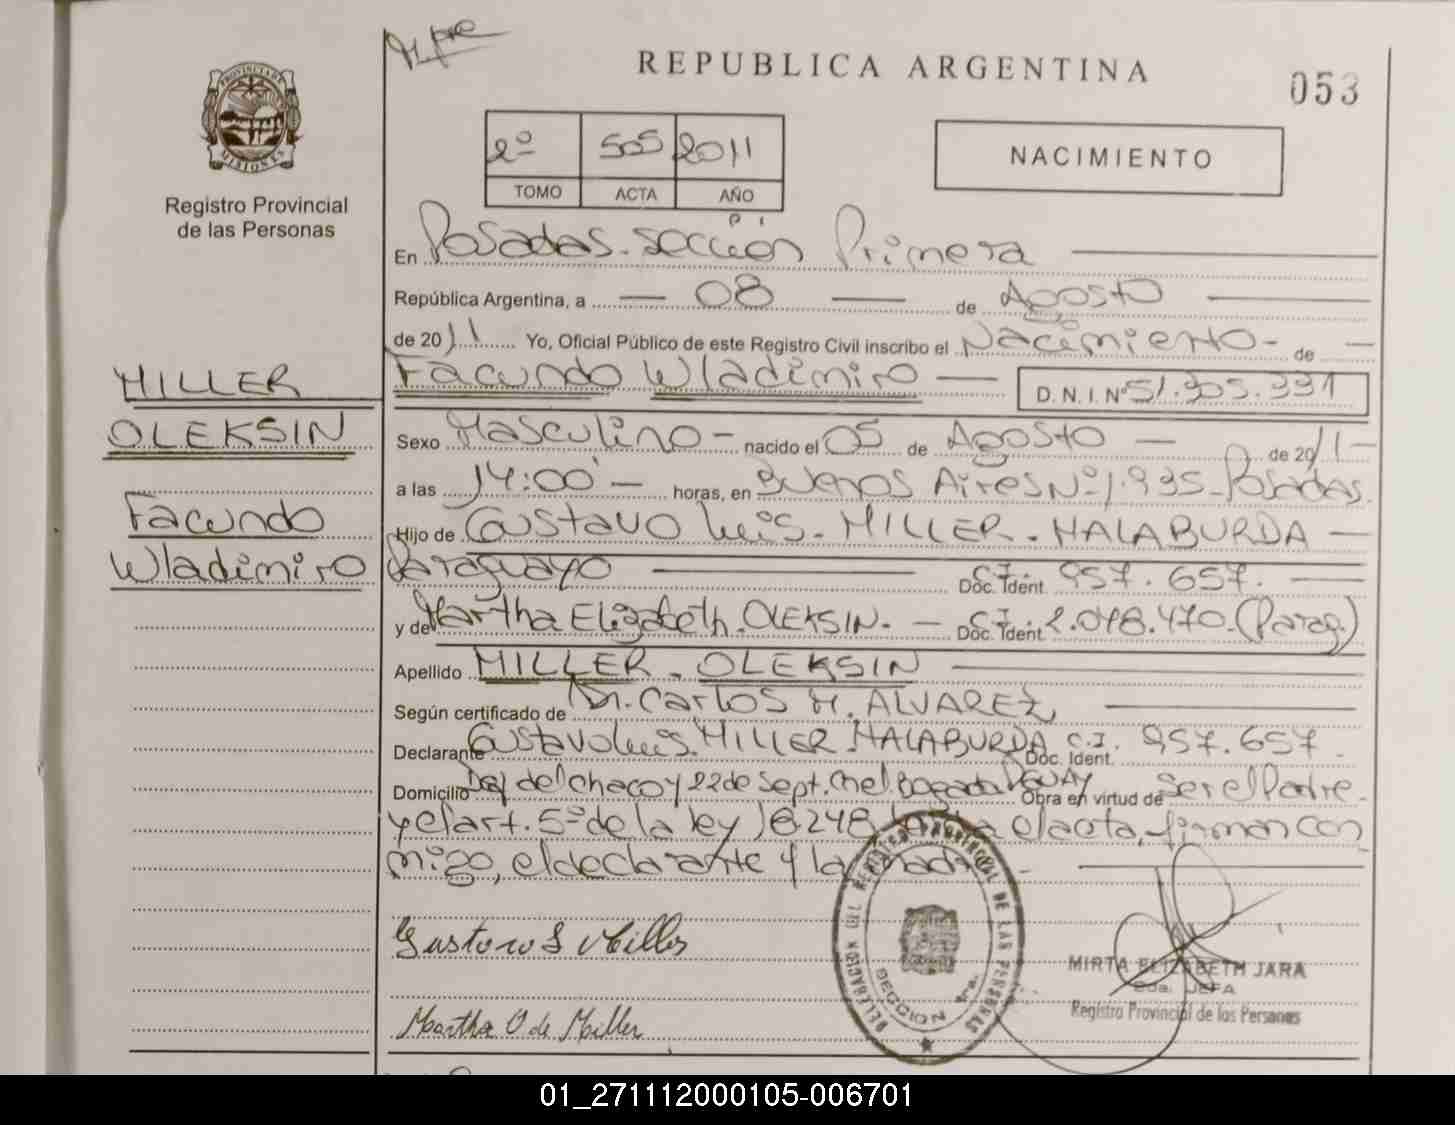 REPUBLICA ARGENTINA
053
PROVINCIA DE MISIONES
Registro Provincial
de las Personas
2º 505 2011
TOMO ACTA AÑO
NACIMIENTO
En Posadas. sección Primera
República Argentina, a 08 de Agosto
de 2011 Yo, Oficial Público de este Registro Civil inscribo el Nacimiento- de
Facundo Wladimiro D. N. I. Nº 51.305.331
MILLER
OLEKSIN
Facundo
Wladimiro
Sexo Masculino - nacido el 05 de Agosto - de 2011-
a las 14:00' - horas, en Buenos Aires Nº 1.935-Posadas.
Hijo de Gustavo Luis. MILLER. HALABURDA -
Paraguayo Doc. Ident. C.I. 957.657.
y de Martha Elizabeth. OLEKSIN. - Doc. Ident. C.I. 2.048.470.(Parag.)
Apellido MILLER. OLEKSIN
Según certificado de Dr. Carlos M. ALVAREZ
Declarante Gustavo Luis. MILLER. HALABURDA Doc. Ident. C.I. 957.657.
Domicilio Def del Chaco y 22 de Sept. Cnel. Bogado Obra en virtud de Ser el Padre.
y el art. 5º de la ley 18.248 el acta, firman con
migo, el declarante y la madre.
Gustavo L Miller
Martha O de Miller
DELEGACION DEL REGISTRO PROVINCIAL DE LAS PERSONAS
SECCION 1ra.
MIRTA ELIZABETH JARA
JEFA
Registro Provincial de las Personas
01_271112000105-006701